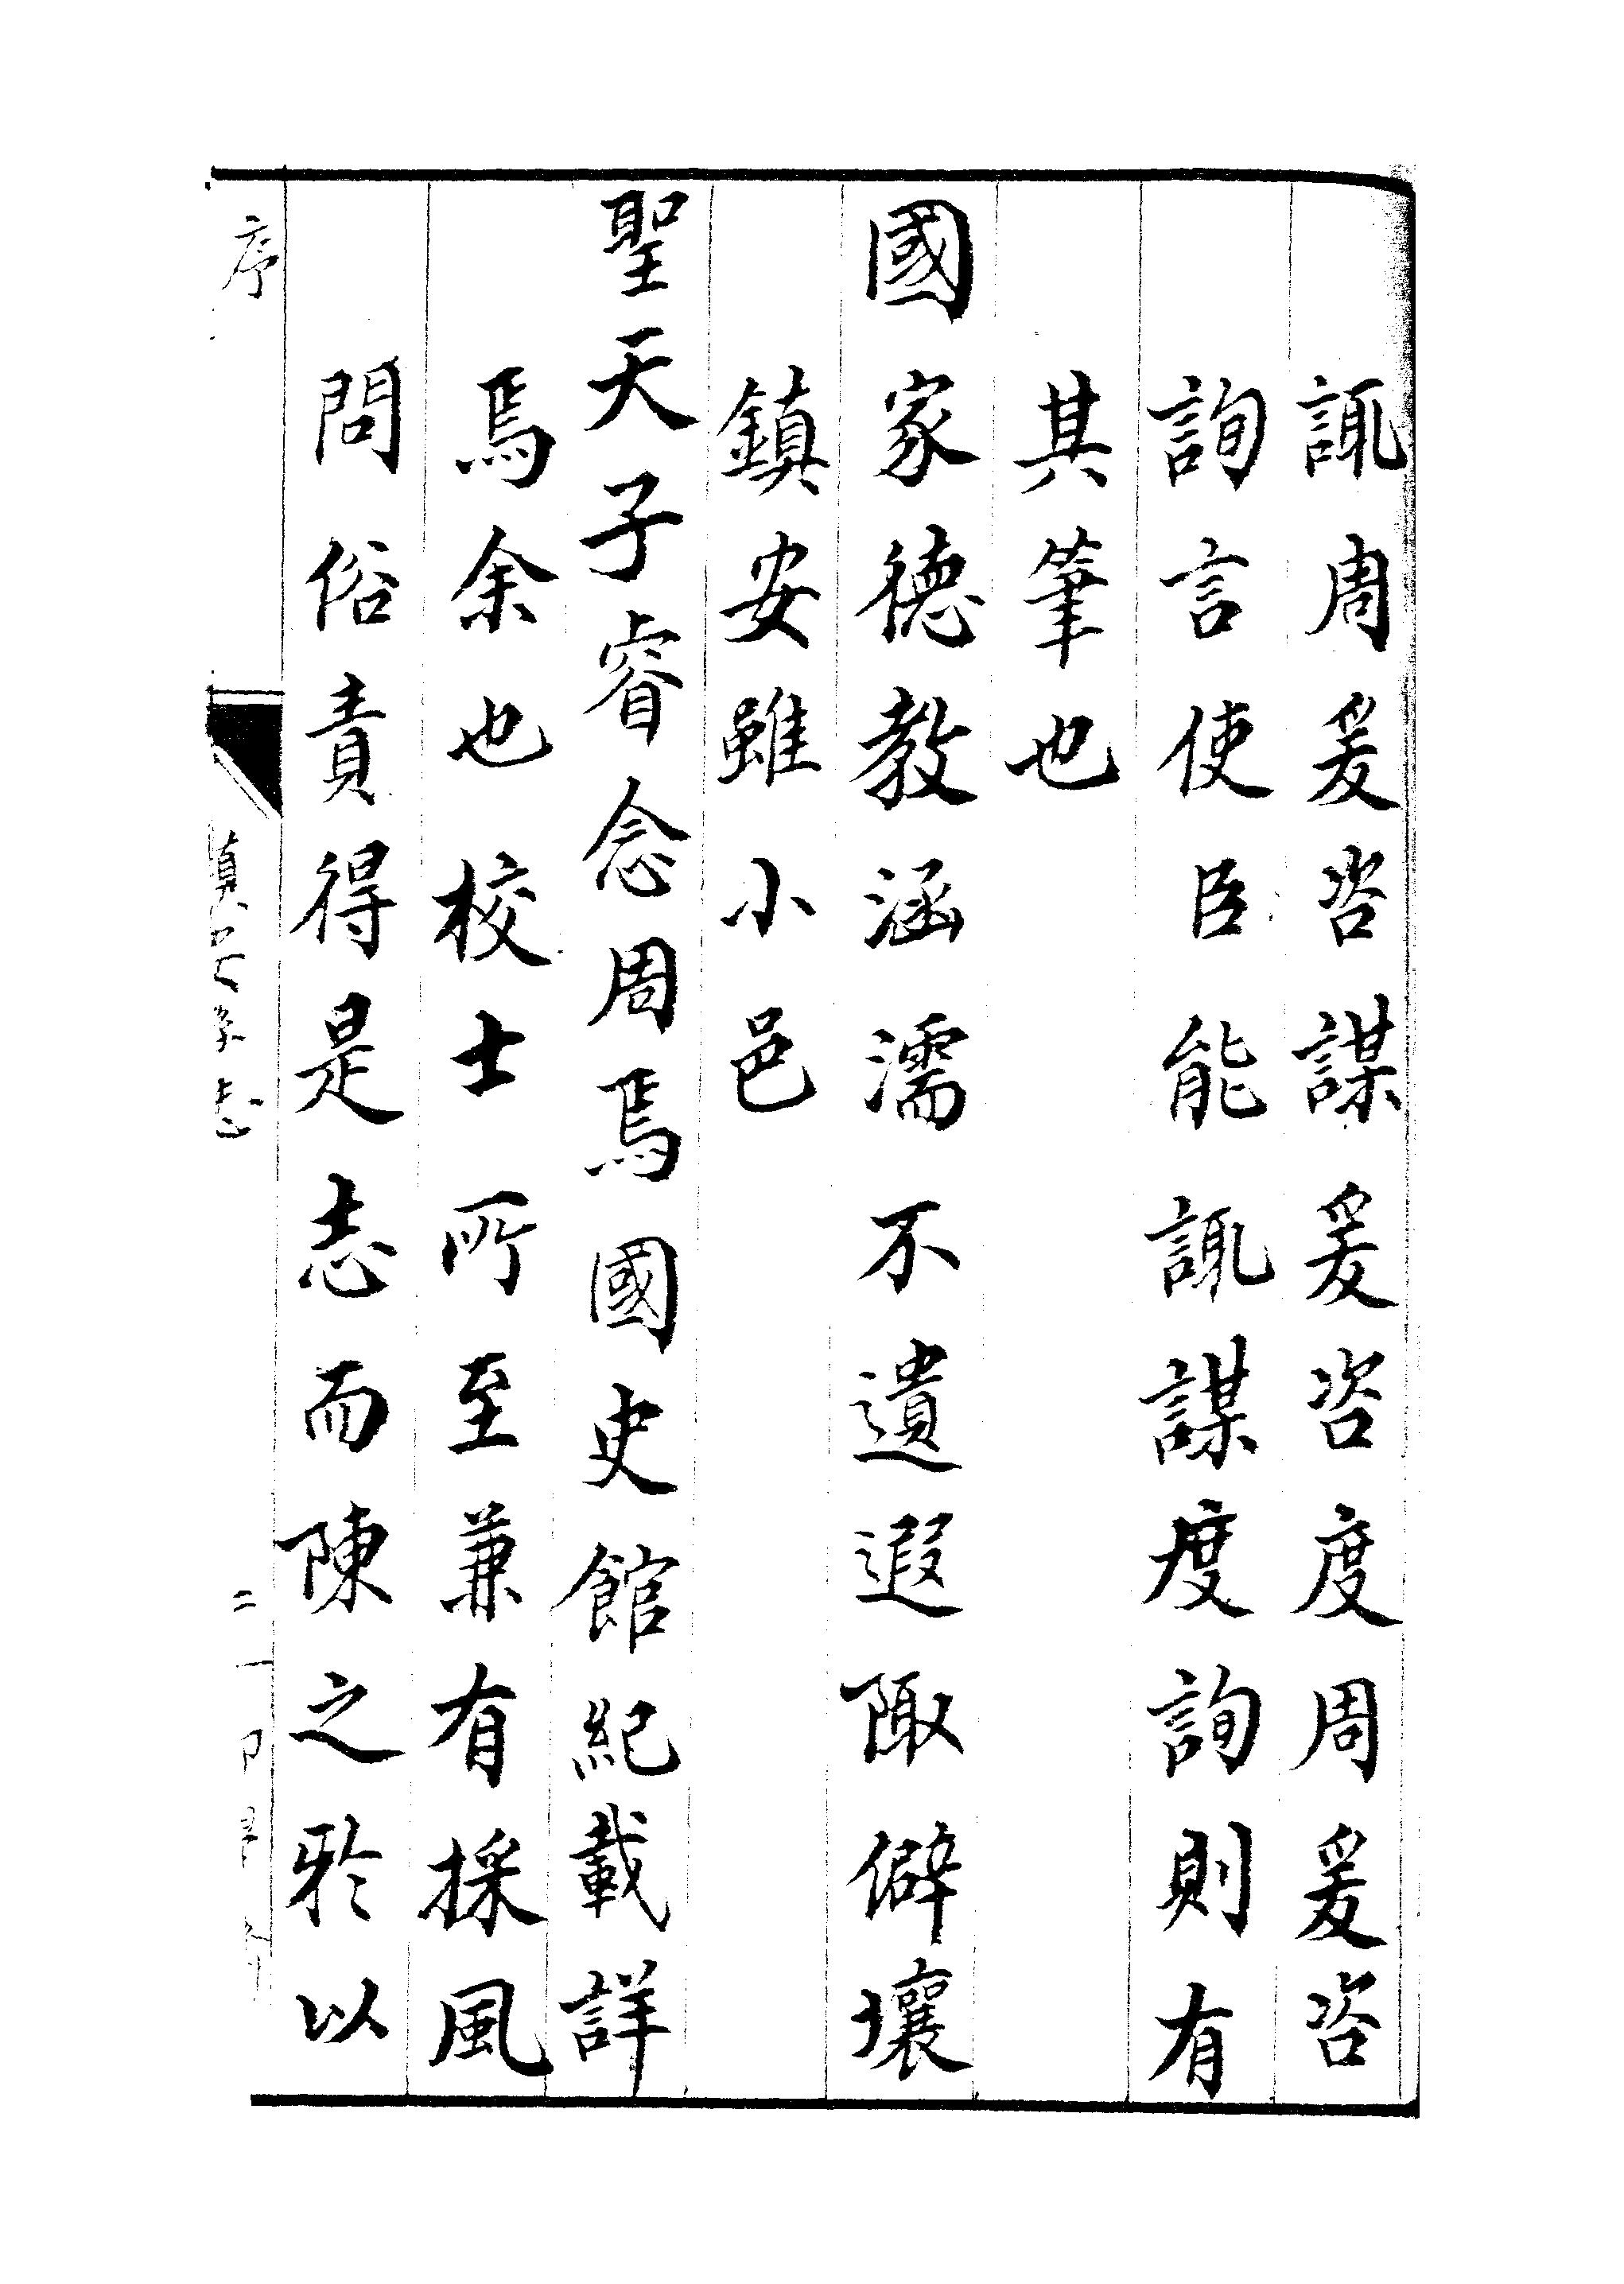 諏周爰咨謀爰咨度周爰咨
詢言使臣能諏謀度詢則有
其筆也
國家德教涵濡不遺遐陬僻壤
鎮安雖小邑
聖天子睿念周焉國史館紀載詳
焉余也校士所至兼有採風
問俗責得是志而陳之於以
序
鎮安縣志
二